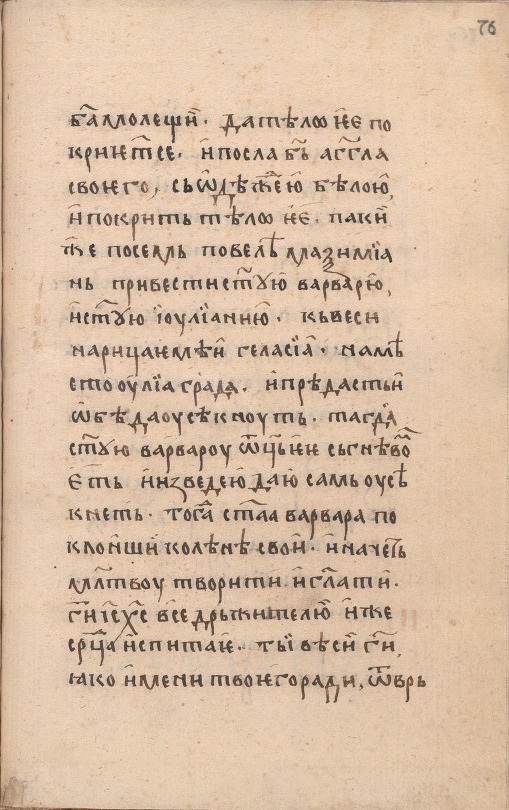 76
б҃а молещи. да тѣлѡ ѥ по
криѥтсе. и посла б҃ь агг҃ла
своѥго, сь ѡдѣждею бѣлою,
и покрить тѣлѡ ѥе. паки
же посемь повелѣ мазимїа
нь привести ст҃ую варварю,
и ст҃ую їоулїанию. кь веси
нарицаѥмѣи геласїа. на мѣ
сто оулїа града. и прѣдасть и
ѡбѣ да оусѣкноуть. тагда
ст҃ую варвароу ѿц҃ь ѥѥ сь гнѣво
еть и изведею даю самь оусѣ
кнеть. тог҃а ст҃аа варвара по
клоньши колѣнѣ свои. и начеть
мл҃твоу творити и гл҃ати.
г҃и іс҃ х҃е все дрьжителю иже
ср҃ца испитаѥ. ты вѣси г҃и,
ꙗко имени твоѥго ради, ѿврь